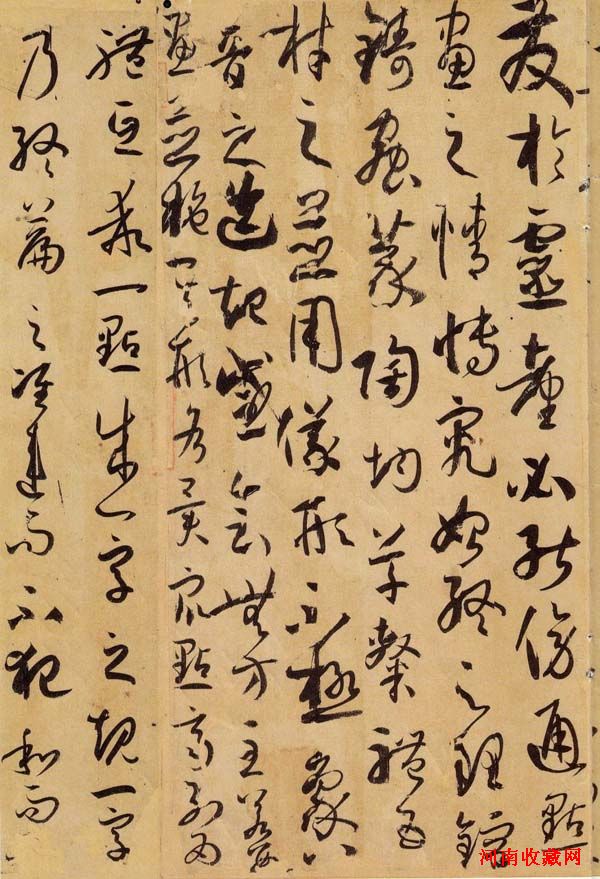 發於靈臺必能傍通點
畫之情博究始終之理鎔
鑄蟲篆陶均草隸體五
材之並用儀形不極象八
音之迭起感會無方至若數
畫並施其形各異眾點齊列為
體互乖一點成一字之規一字
乃終篇之准違而不犯和而
河南收藏网